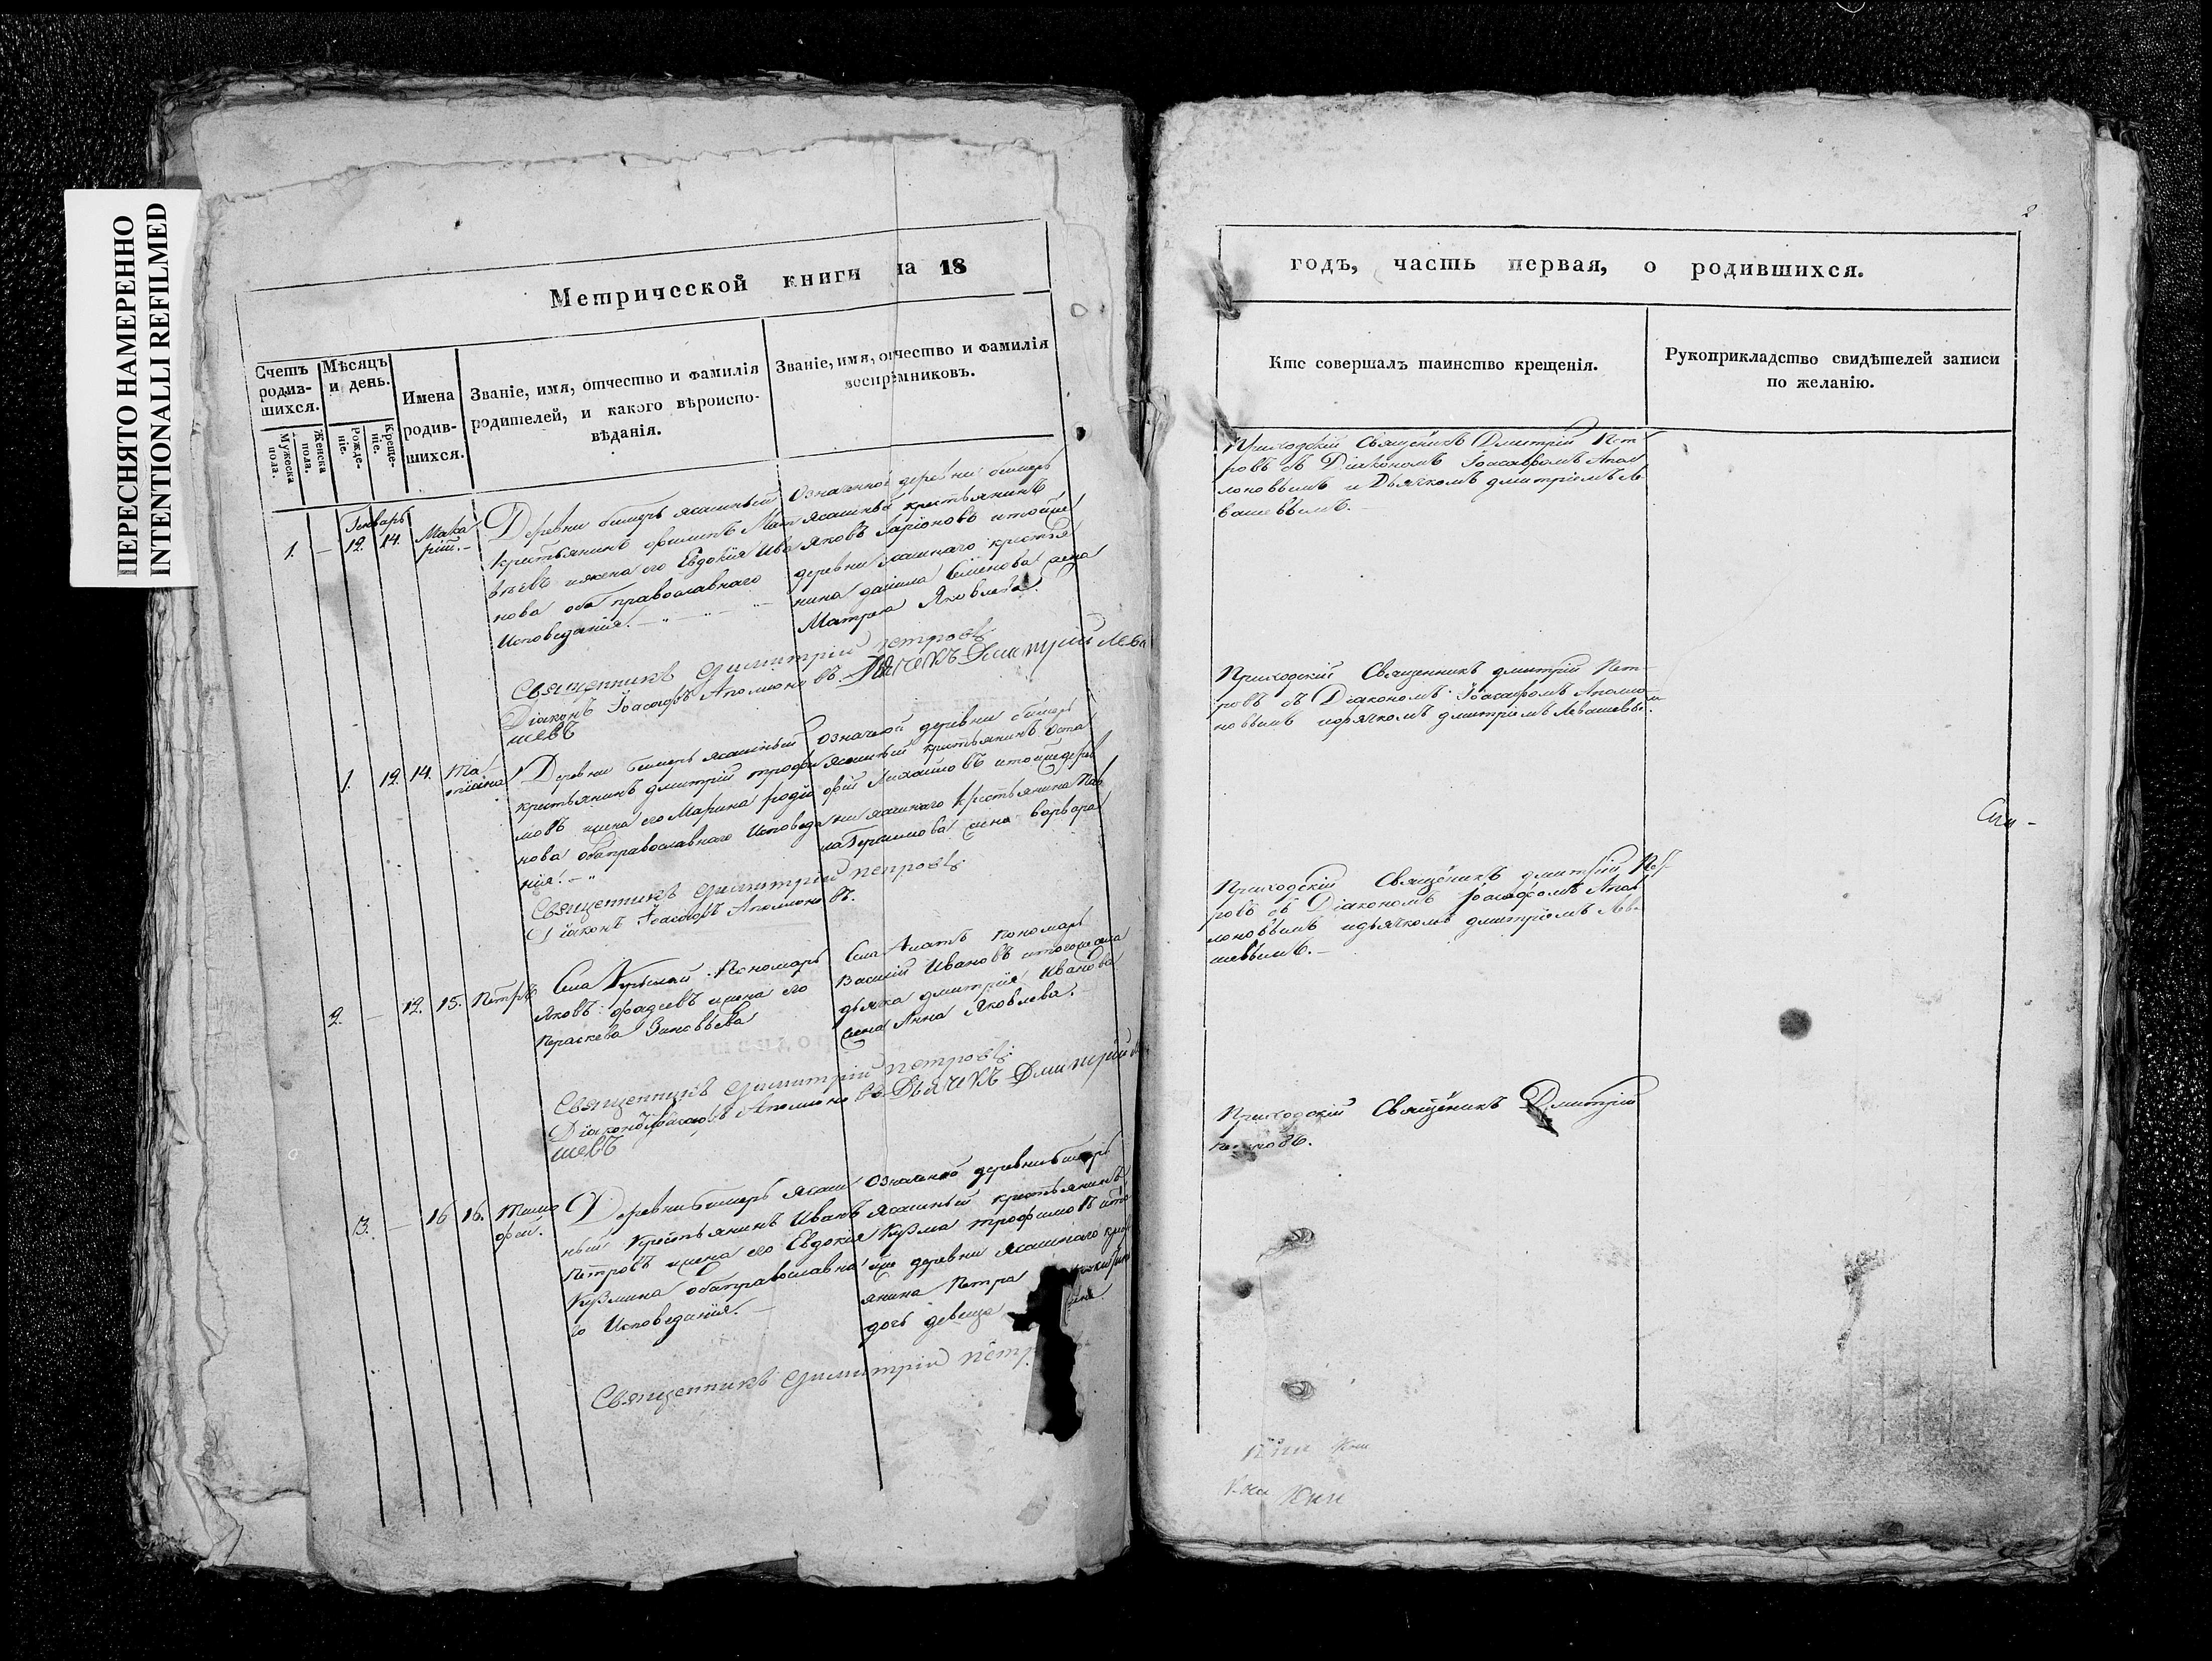 ПЕРЕСНЯТО НАМЕРЕННО
INTENTIONALLI REFILMED
Метрической книги на 18
Счетъ родившихся.
Мужеска пола.
Женска пола.
Мѣсяцъ и день.
Рожденіе.
Крещеніе.
Имена родившихся.
Званіе, имя, отчество и фамилія
родителей, и какого вѣроиспо-
вѣданія.
Званіе, имя, отчество и фамилія
воспріемниковъ.
Генварь
1. — 12. 14. Мака
рій. —
Деревни ясашный
крестьянинъ филипъ Мат
вѣевъ ижена его Евдокія Ива
нова оба православнаго
Исповеданія. —
Означенной деревни
Ясашный крестьянинъ
Яковъ Ларіоновъ итойже
деревни ясашнаго крестья
нина данила Семенова жена
Матрена Яковлева.
Священникъ Димитрій петровъ
Діаконъ Іоасафъ Аполлоновъ. Дьячекъ Дмитрий Лева
шевъ
1. 12. 14. Та
тіана
Деревни ясашный
крестьянинъ дмитрій трофи
мовъ ижена его Марина родіо
нова оба православнаго Исповеда
нія. —
Означенной деревни
Ясашный крестьянинъ Оста
офій Михайловъ итойже дерев
ни ясашнаго крестьянина Пав
ла Герасимова жена варвара
Священникъ Димитрій петровъ
Діаконъ Іоасафъ Аполлоновъ.
2. — 12. 15. Петръ
Села Пономарь
Яковъ фадеевъ ижена его
Параскева Зиновьева
Села Алатъ пономарь
Василій Ивановъ итогоже села
дьячка дмитрія Иванова
жена Анна Яковлева.
Священникъ Димитрій петровъ
Діаконъ Іоасафъ Аполлоновъ Дьячекъ Дмитрий
шевъ
3. — 16 16. Тимо
фей.
Деревни ясаш
ный Крестьянинъ Иванъ
Петровъ ижена его Евдокія
Кузмина оба православна
го Исповеданія. —
Означенной деревни
Ясашный крестьянинъ
Кузма трофимовъ ито
йже деревни Ясашнаго крес
янина Петра
дочь девица
Священникъ Димитрій петр
2
годъ, часть первая, о родившихся.
Кто совершалъ таинство крещенія.
Рукоприкладство свидѣтелей записи
по желанію.
Приходскій Священикъ Дмитрій Пет
ровъ съ Діакономъ Іоасафомъ Апол
лоновымъ и Дьячкомъ дмитріемъ Ле
вашевымъ. —
Приходскій Священникъ дмитрій Пет
ровъ съ Діакономъ Іоасафомъ Аполло
новымъ идьячкомъ дмитріемъ Левашевы
Приходскій Священикъ дмитрій Пет
ровъ съ Діакономъ Іоасафомъ Апол
лоновымъ идьячкомъ дмитріемъ Лева
шевымъ. —
Приходскій Священикъ Дмитрій
Петровъ.